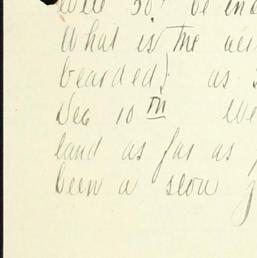 What is the
bearded) as
Dec 10th We
land as far as
been a slow